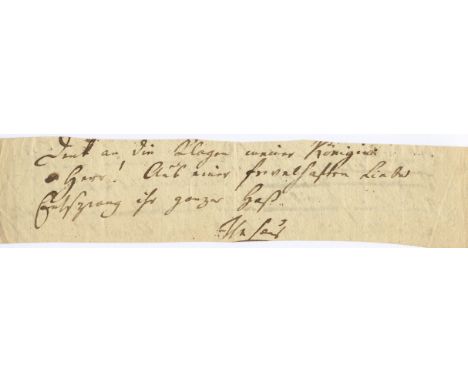 Denk an die Klagen meiner Königin
Herr! Aus einer frevelhaften Liebe
Entsprang ihr ganzer Haß.
Theseus